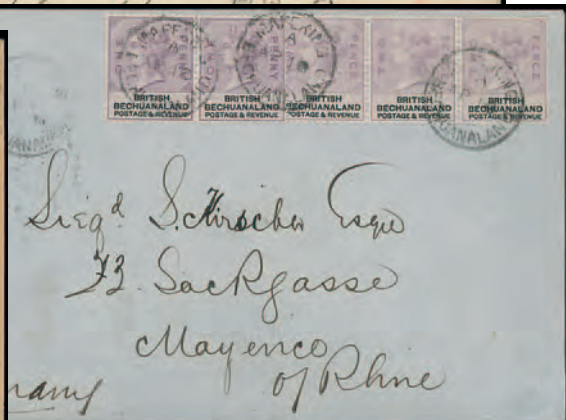 BRITISH BECHUANALAND POSTAGE & REVENUE
BRITISH BECHUANALAND POSTAGE & REVENUE
BRITISH BECHUANALAND POSTAGE & REVENUE
BRITISH BECHUANALAND POSTAGE & REVENUE
BRITISH BECHUANALAND POSTAGE & REVENUE
Siegd. S. Hirscher Esqre
73. Sackgasse
Mayence
of Rhine
many